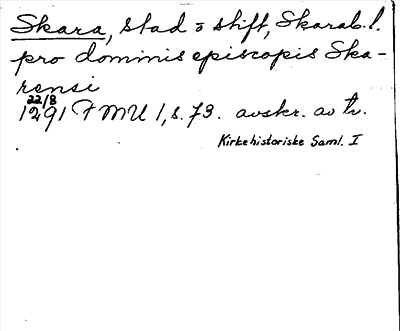 Skara, stad o stift, Skarab. l.
pro dominis episcopis Ska-
rensi
22/8
1291 FMU 1, s. 73. avskr. av tr.
Kirkehistoriske Saml. I